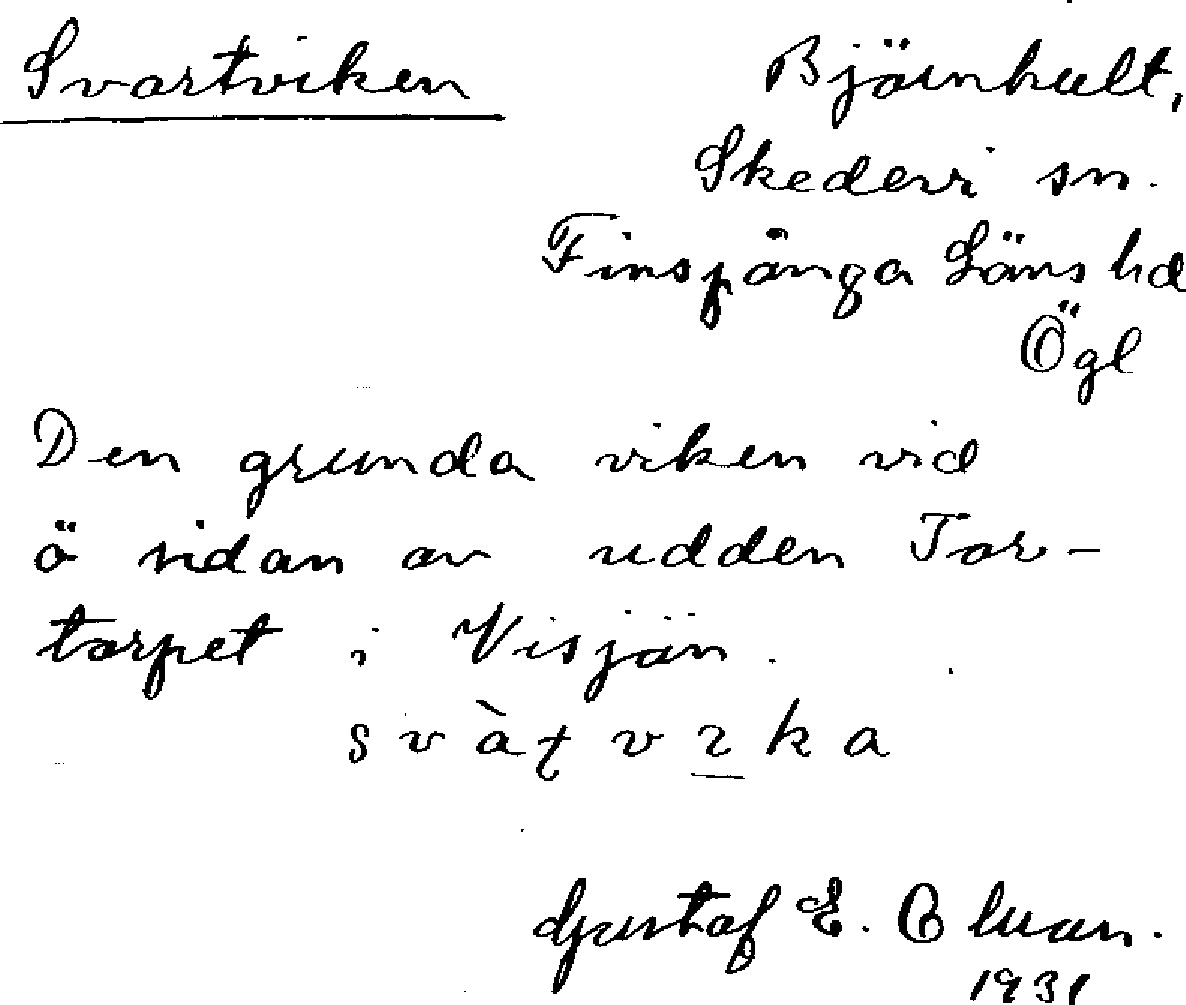 Svartviken
Björnhult,
Skedevi sn.
Finspånga Läns hd
Ögl
Den grunda viken vid
ö sidan av udden Tor-
torpet i Visjön.
svàt vıka
Gustaf E.
1931